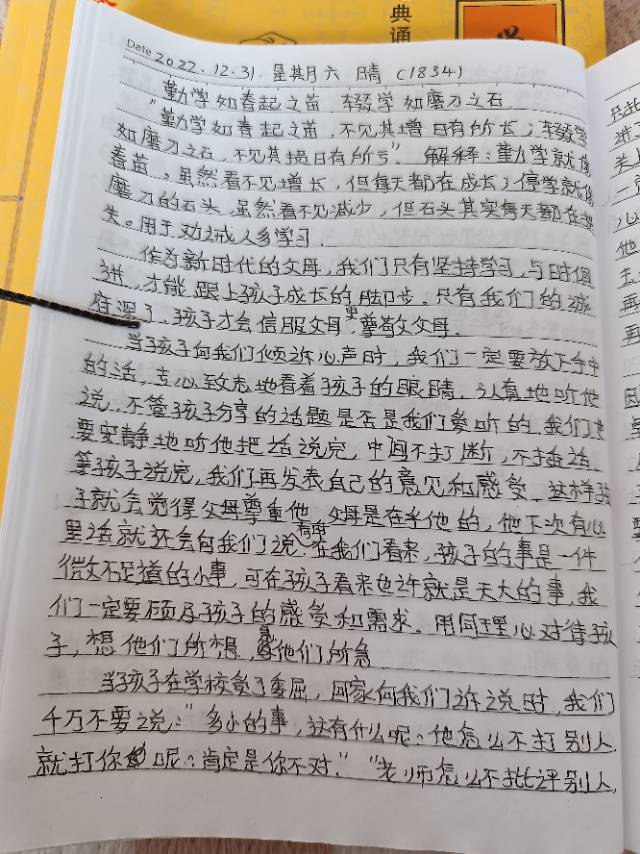 典通
Date 2022.12.31. 星期六 晴 (1834)
勤学如春起之苗 辍学如磨刀之石
"勤学如春起之苗,不见其增日有所长;辍学
如磨刀之石,不见其损日有所亏"。解释:勤学就像
春苗,虽然看不见增长,但每天都在成长;停学就像
磨刀的石头,虽然看不见减少,但石头其实每天都在
失。用于劝诫人多学习。
作为新时代的父母,我们只有坚持学习,与时俱
进,才能跟上孩子成长的脚步。只有我们的
深了,孩子才会信服父母,更尊敬父母。
当孩子向我们倾诉心声时,我们一定要放下手中
的活,专心致志地看着孩子的眼睛,认真地听他
说,不管孩子分享的话题是否是我们爱听的,我们
要安静地听他把话说完,中间不打断,不插话,
等孩子说完,我们再发表自己的意见和感受。这样孩
子就会觉得父母尊重他,父母是在乎他的,他下次有心
里话就还会向我们说。在我们看来,孩子的事是一件
微不足道的小事,可在孩子看来也许就是天大的事,我
们一定要顾及孩子的感受和需求。用同理心对待孩
子,想他们所想,急他们所急
当孩子在学校受了委屈,回家向我们诉说时,我们
千万不要说:"多小的事,这有什么呢?他怎么不打别人,
就打你呢?肯定是你不对。""老师怎么不批评别人,